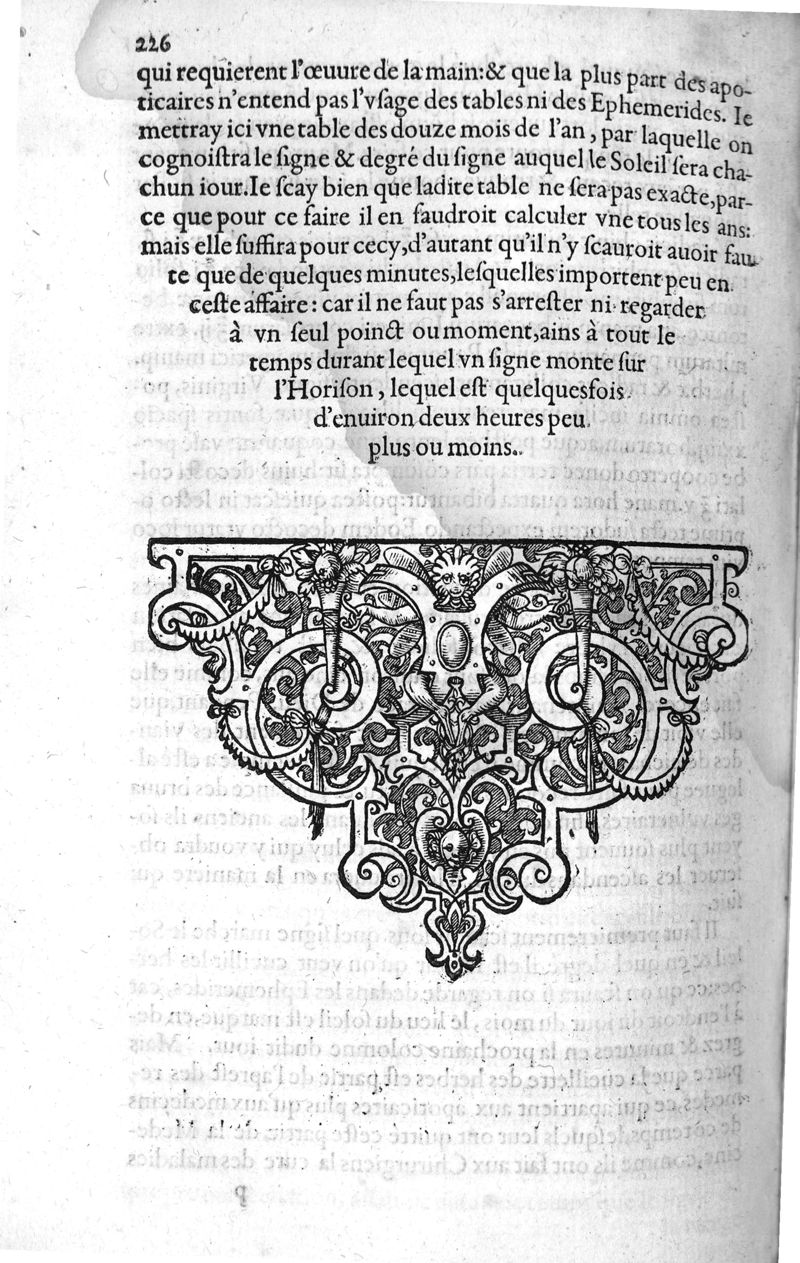 226
qui requierent l'œuure de la main:& que la plus part des apo-
ticaires n'entend pas l'vſage des tables ni des Ephemerides. Ie
mettray ici vne table des douze mois de l'an, par laquelle on
cognoiſtra le ſigne & degré du ſigne auquel le Soleil ſera cha-
chun iour. Ie ſcay bien que ladite table ne ſera pas exacte, par-
ce que pour ce faire il en faudroit calculer vne tous les ans:
mais elle ſuffira pour cecy, d'autant qu'il n'y ſcauroit auoir fau-
te que de quelques minutes, leſquelles importent peu en
ceſte affaire: car il ne faut pas s'arreſter ni regarder
à vn ſeul poinct ou moment, ains à tout le
temps durant lequel vn ſigne monte ſur
l'Horiſon, lequel eſt quelquesfois
d'enuiron deux heures peu
plus ou moins.